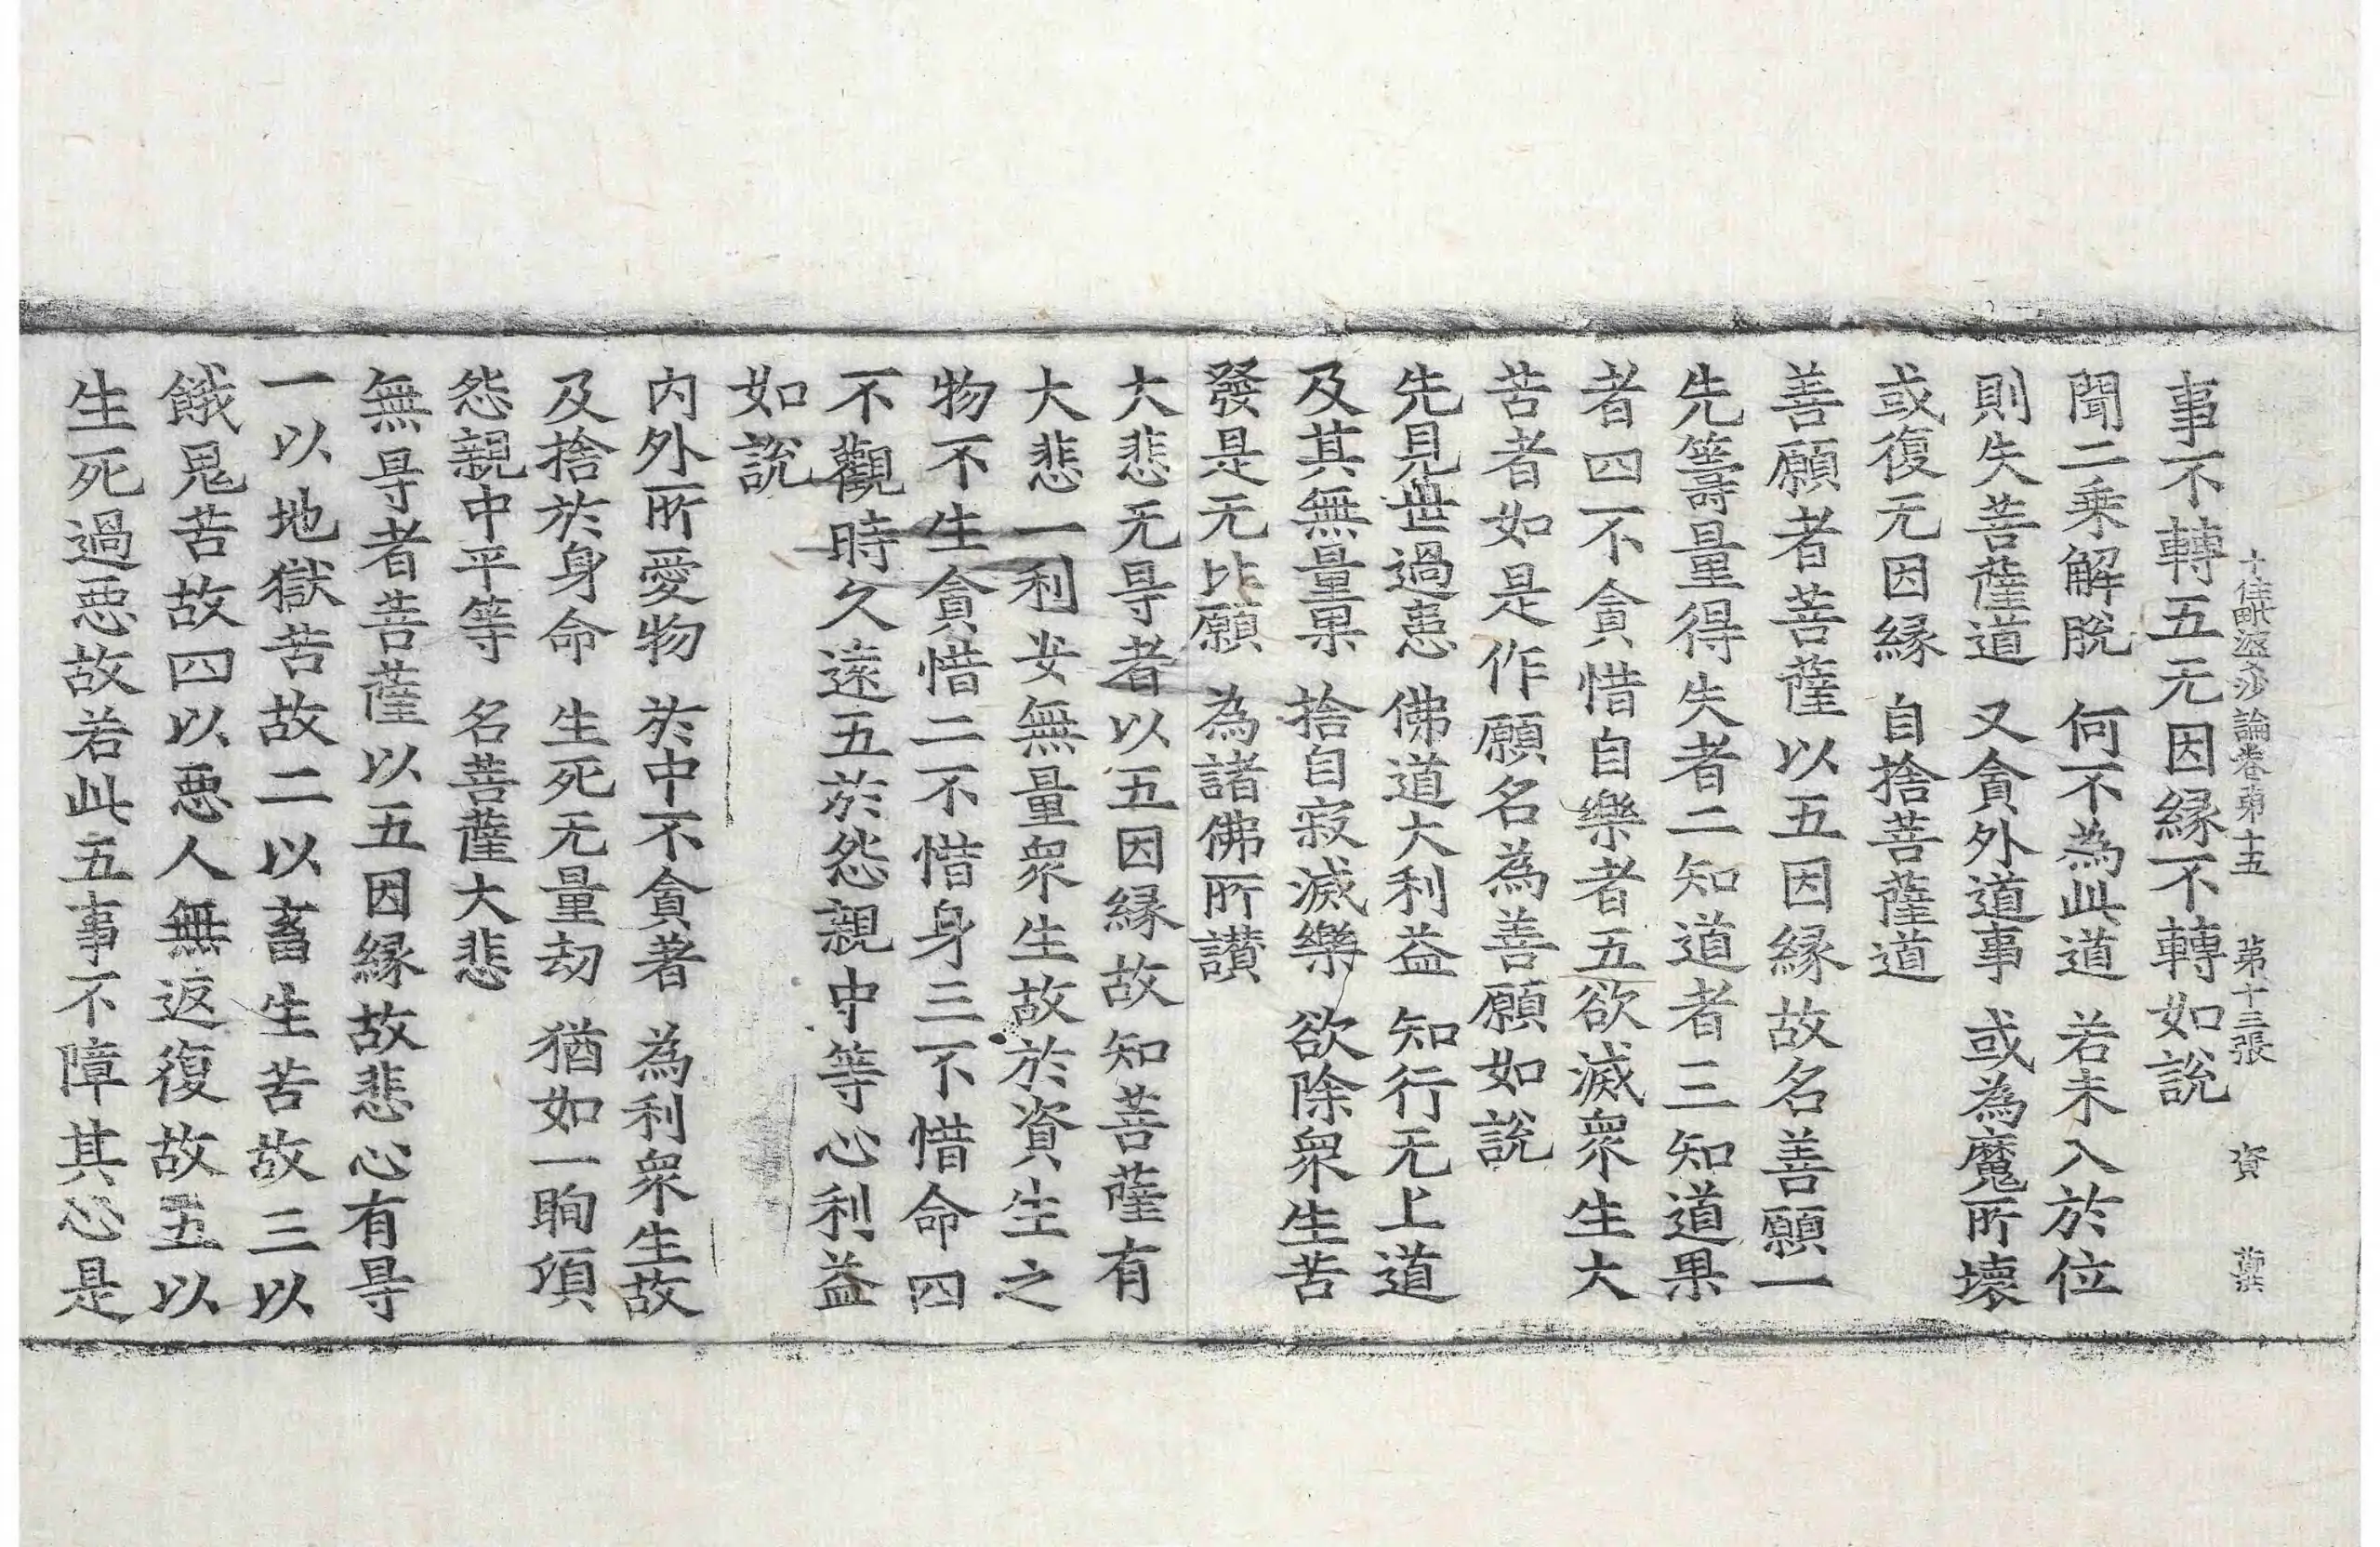 十住毗婆沙論卷第十五　第十三張　資
事不轉五无因緣不轉如說
聞二乘解脫　何不為此道　若未入於位
則失菩薩道　又貪外道事　或為魔所壞
或復元因縁　自捨菩薩道
善願者菩薩以五因緣故名善願一
先籌量得失者二知道者三知道果
者四不貪惜自樂者五欲滅衆生大
苦者如是作願名為善願如說
先見世過患　佛道大利益　知行无上道
及其無量果　捨自寂滅樂　欲除衆生苦
發是无比願　為諸佛所讃
大悲无㝵者以五因緣故知菩薩有
大悲一利安無量衆生故於資生之
物不生貪惜二不惜身三不惜命四
不觀時久遠五於怨親中等心利益
如說
内外所愛物　於中不貪著　為利衆生故
及捨於身命　生死无量劫　猶如一眴項
怨親中平等　名菩薩大悲
無㝵者菩薩以五因緣故悲心有㝵
一以地獄苦故二以畜生苦故三以
餓鬼苦故四以惡人無返復故五以
生死過惡故若此五事不障其心是